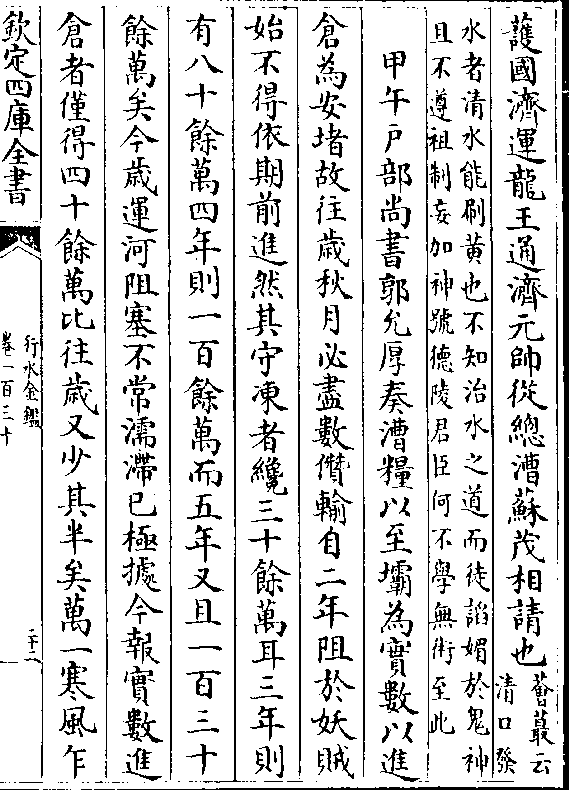 護國濟運龍王通濟元帥從總漕蘇茂相請也薈蕞云清口發
水者清水能刷黄也不知治水之道而徒謟媚於鬼神
且不遵祖制妄加神號德陵君臣何不學無術至此
甲午戸部尚書郭允厚奏漕糧以至壩為實數以進
倉為安堵故往歲秋月必盡數儹輸自二年阻於妖賊
始不得依期前進然其守凍者纔三十餘萬耳三年則
有八十餘萬四年則一百餘萬而五年又且一百三十
餘萬矣今歲運河阻塞不常濡滯已極據今報實數進
倉者僅得四十餘萬比往歲又少其半矣萬一寒風乍
欽定四庫全書
行水金鑑
卷一百三十